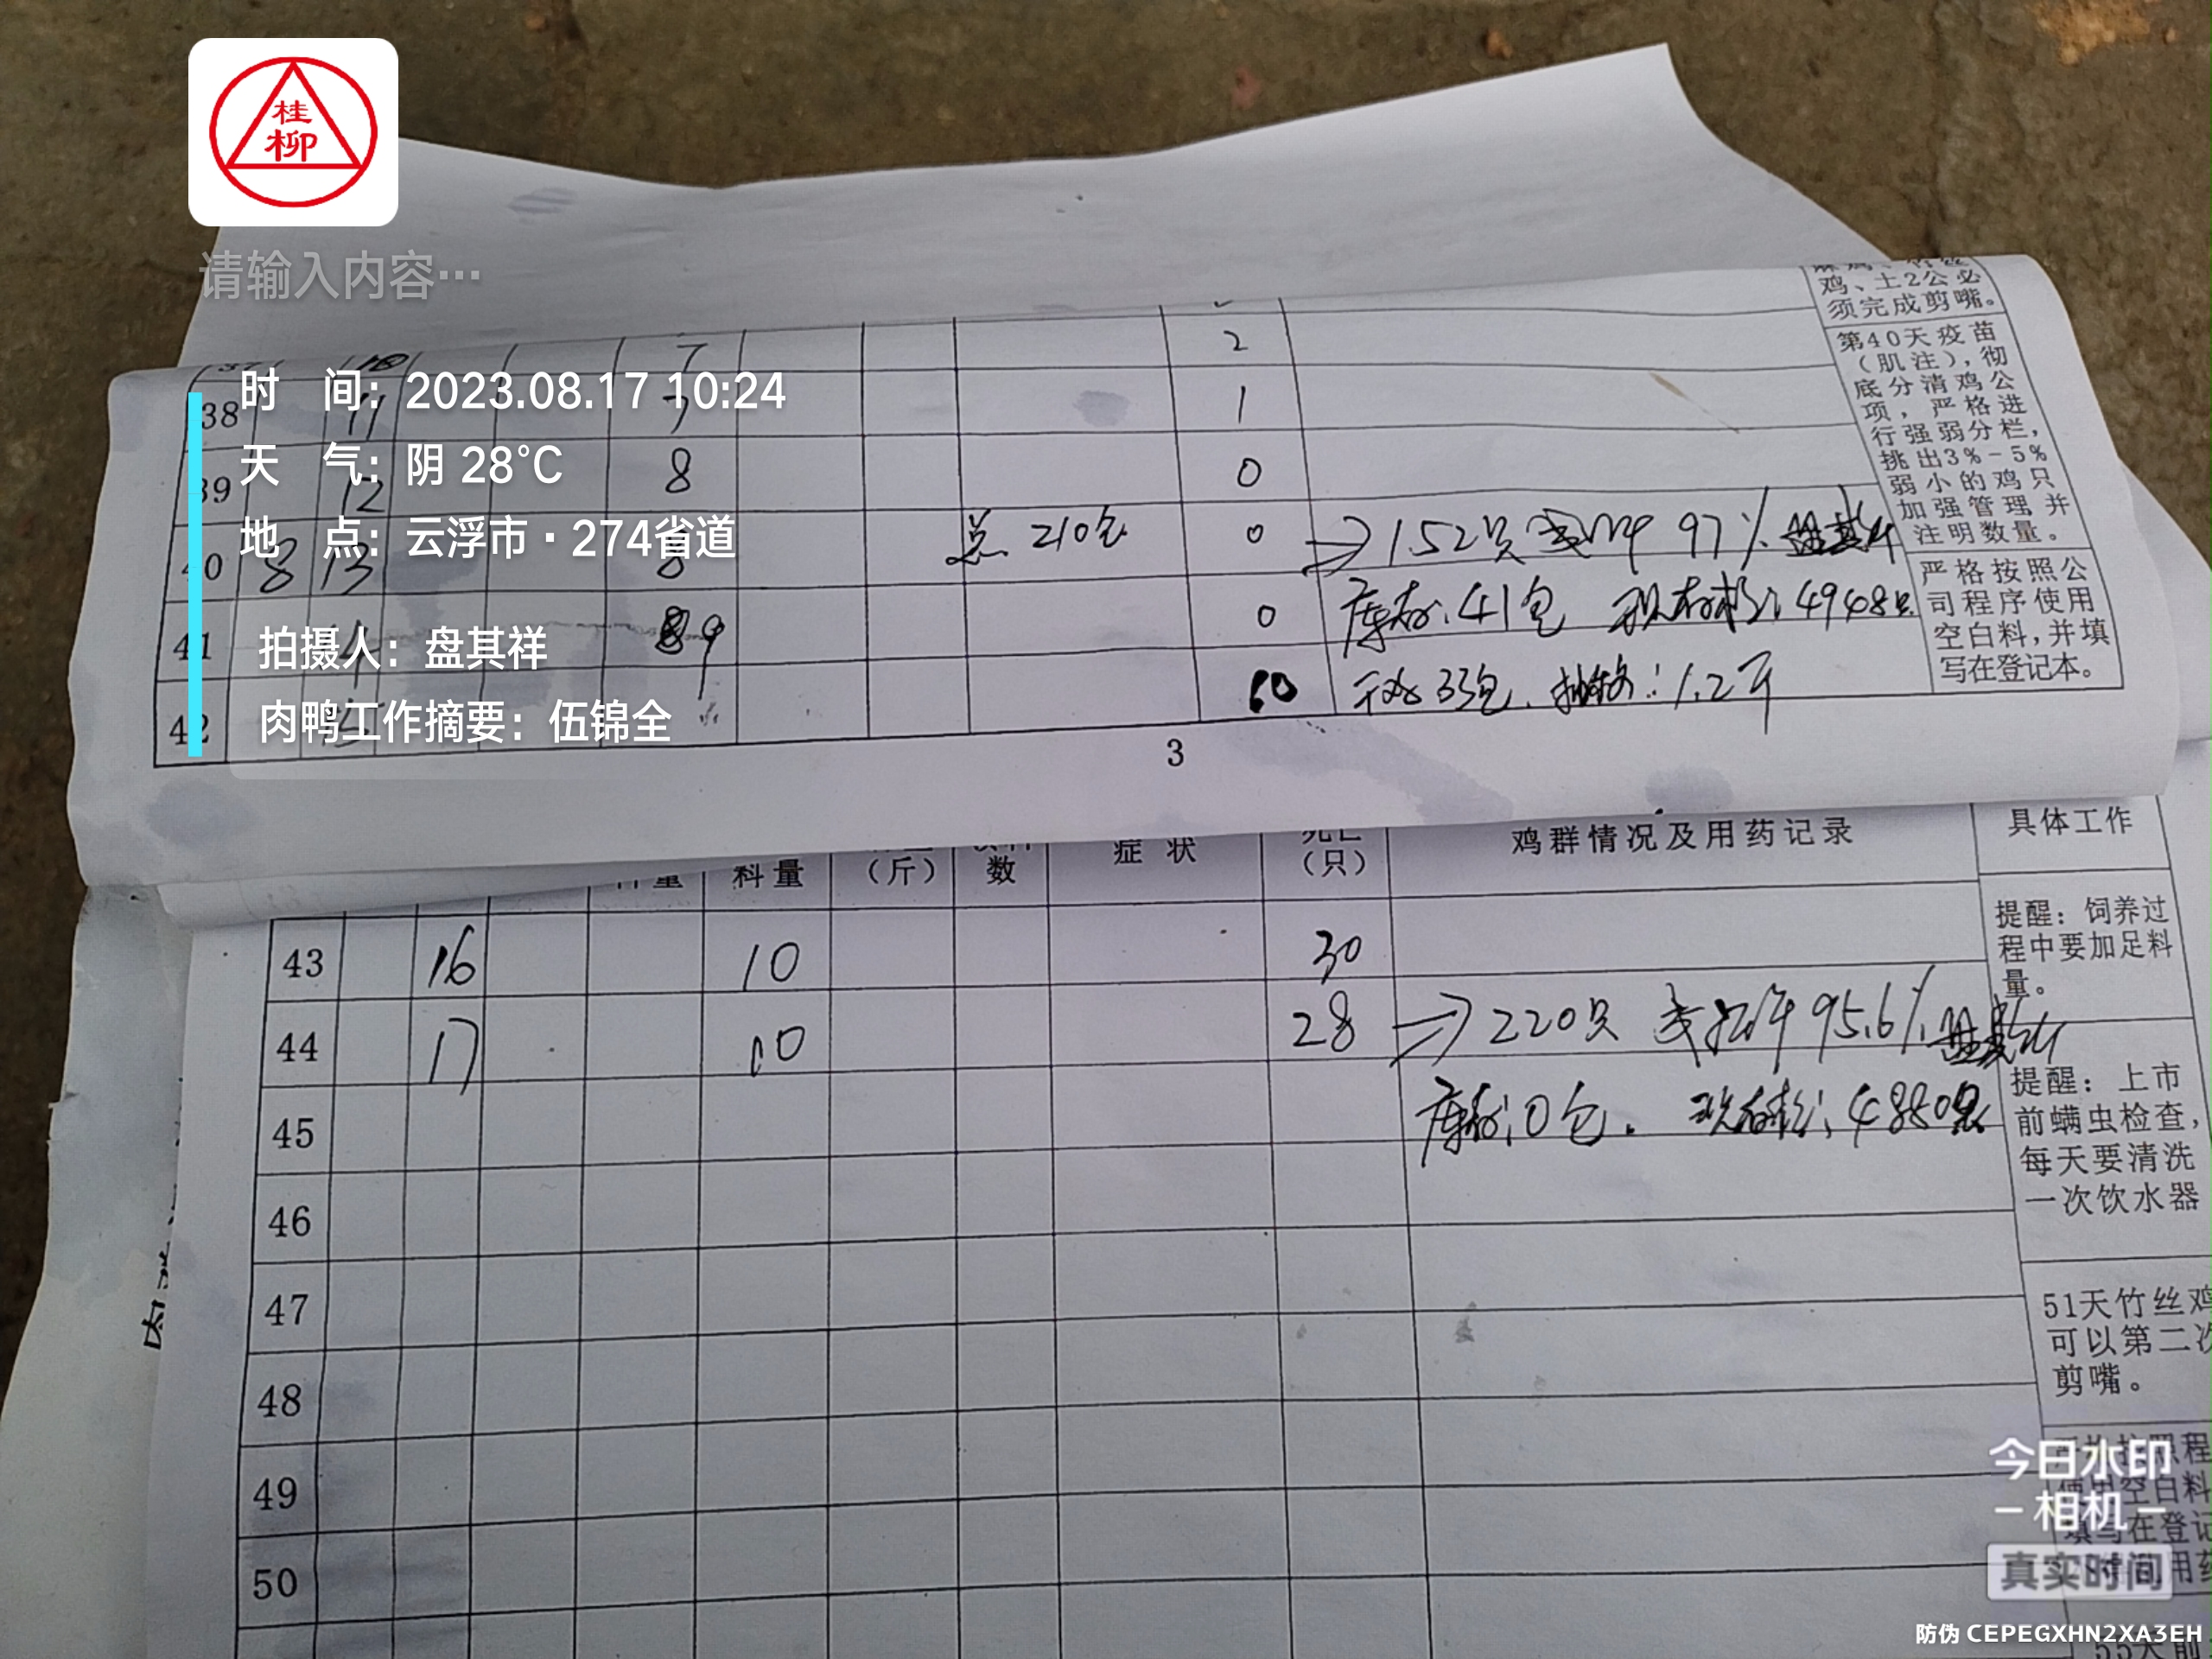 桂
柳
请输入内容…
时 间：2023.08.17 10:24
天 气：阴 28°C
地 点：云浮市·274省道
拍摄人：盘其祥
肉鸭工作摘要：伍锦全
鸡、土2公必
须完成剪嘴。
第40天疫苗
（肌注），彻
底分清鸡公
项，严格进
行强弱分栏，
挑出3%-5%
弱小的鸡只
加强管理并
注明数量。
严格按照公
司程序使用
空白料，并填
写在登记本。
7 2
38 11 7 1
39 12 8 0
40 8 13 8 总 210包 0 152只 97%
41 14 9 0 库存：41包 现存栏：4948只
42 15 10 33包 1.2斤
3
料量 （斤） 数 症状 （只） 鸡群情况及用药记录 具体工作
43 16 10 30
44 17 10 28 220只 95.6%
45 库存：0包. 现存栏：4880只
46
47
48
49
50
提醒：饲养过
程中要加足料
量。
提醒：上市
前螨虫检查，
每天要清洗
一次饮水器
51天竹丝鸡
可以第二次
剪嘴。
今日水印
-相机-
真实时间
防伪 CEPEGXHN2XA3EH